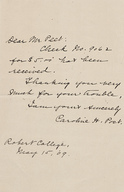 Dear Mr Peet:
Check No. 9062
for $5.01 has been
received.
Thanking you very
much for your trouble,
I am yours sincerely
Caroline H.
Robert College,
May 15, '09.